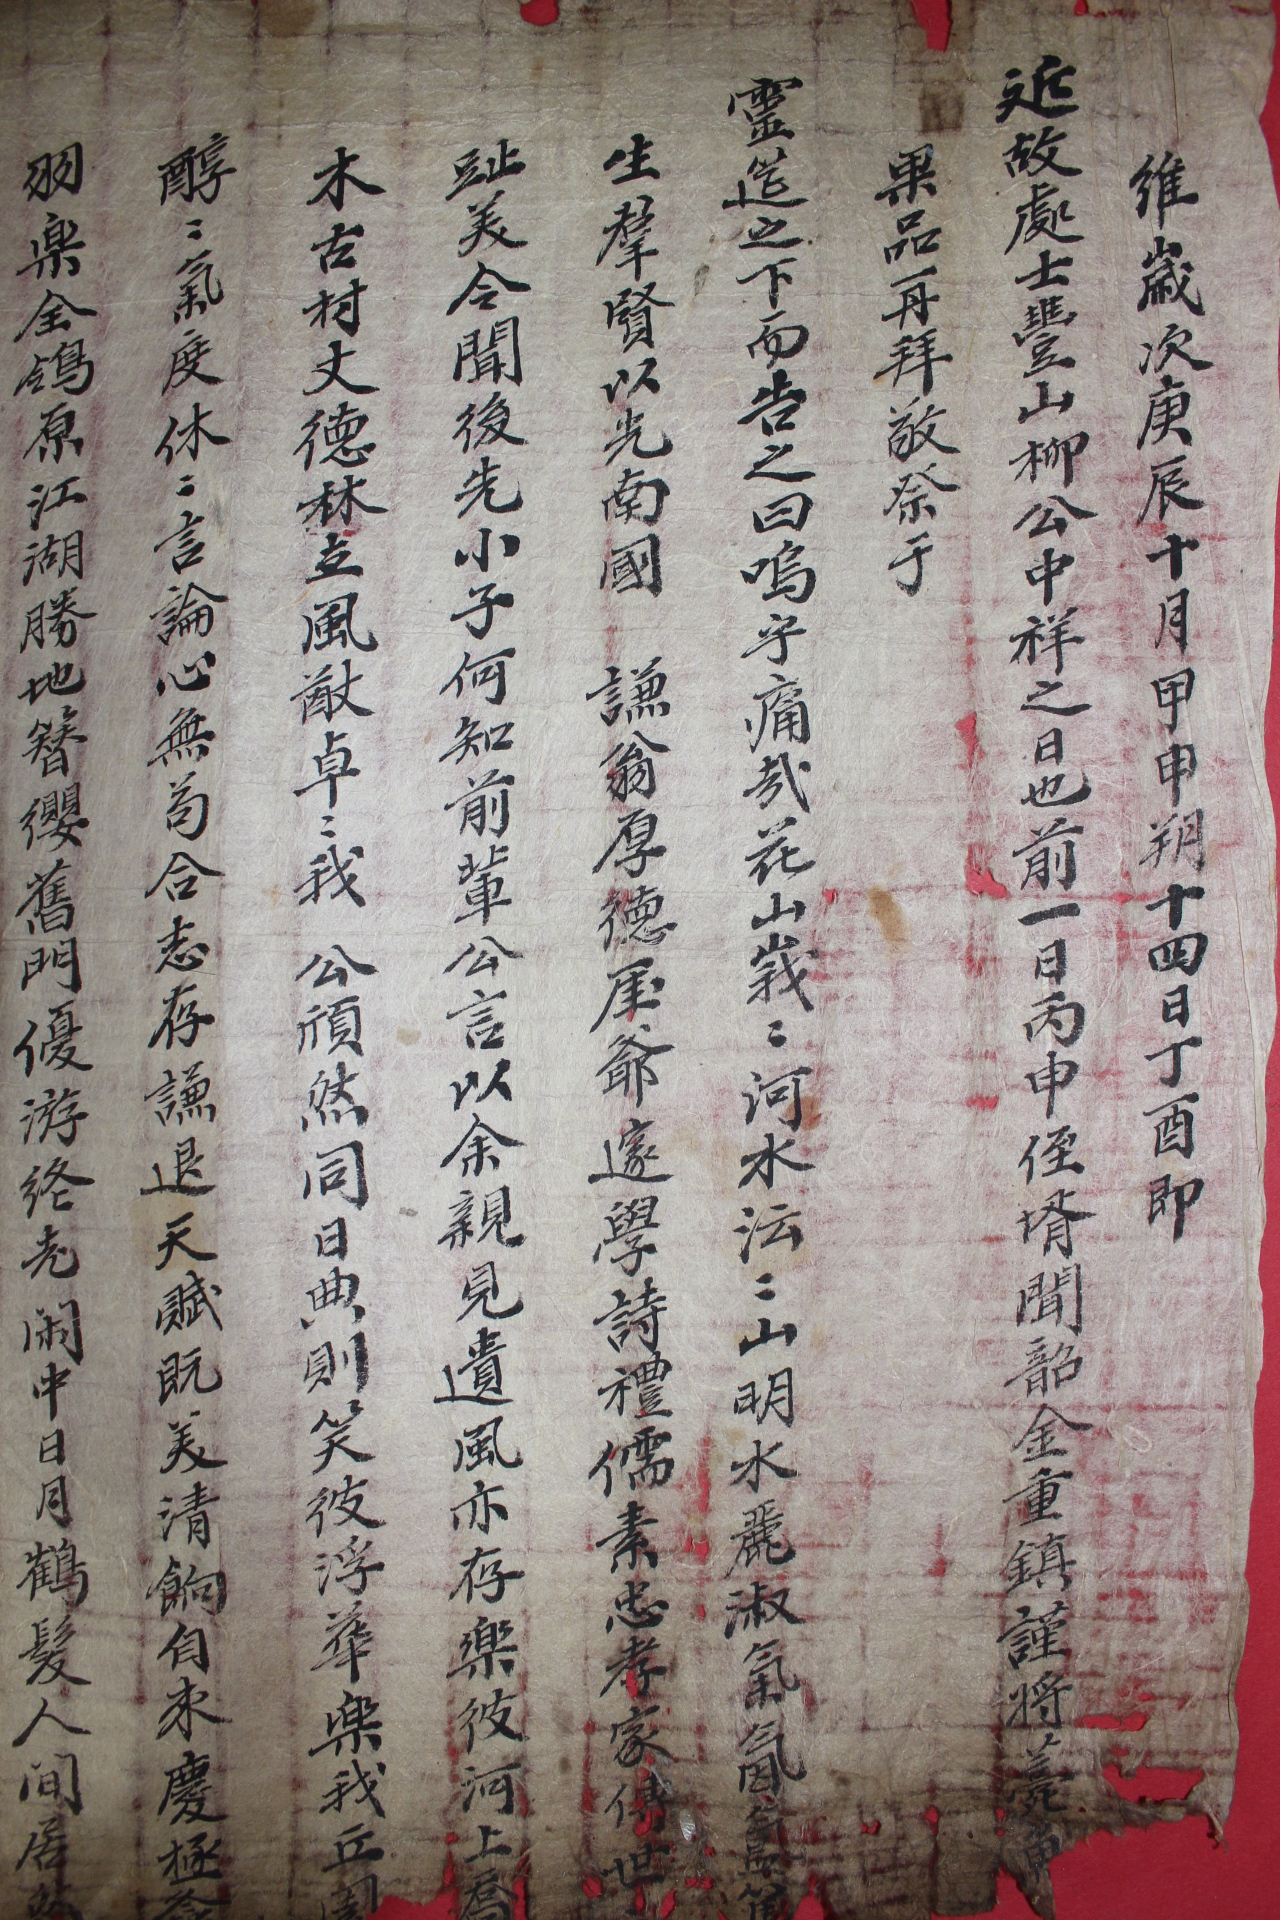 維歲次庚辰十月甲申朔十四日丁酉即
近故處士豐山柳公中祥之日也前一日丙申侄壻聞韶金重鎮謹將薧魚
果品再拜敬祭于
靈筵之下而告之曰嗚乎痛哉花山峩〻河水沄〻山明水麗淑氣氤氳篤
生羣賢以光南國 謙翁厚德厓爺邃學詩禮儒素忠孝家傳世
趾美令聞後先小子何知前輩公言以余親見遺風亦存樂彼河上喬
木古村丈德林立風猷卓〻我 公頎然同日典則笑彼浮華樂我丘園
醇〻氣度休〻言論心無苟合志存謙退天賦既美清餉自來慶極
翙樂全鴒原江湖勝地簪纓舊門優游終老閒中日月鶴髮人間居